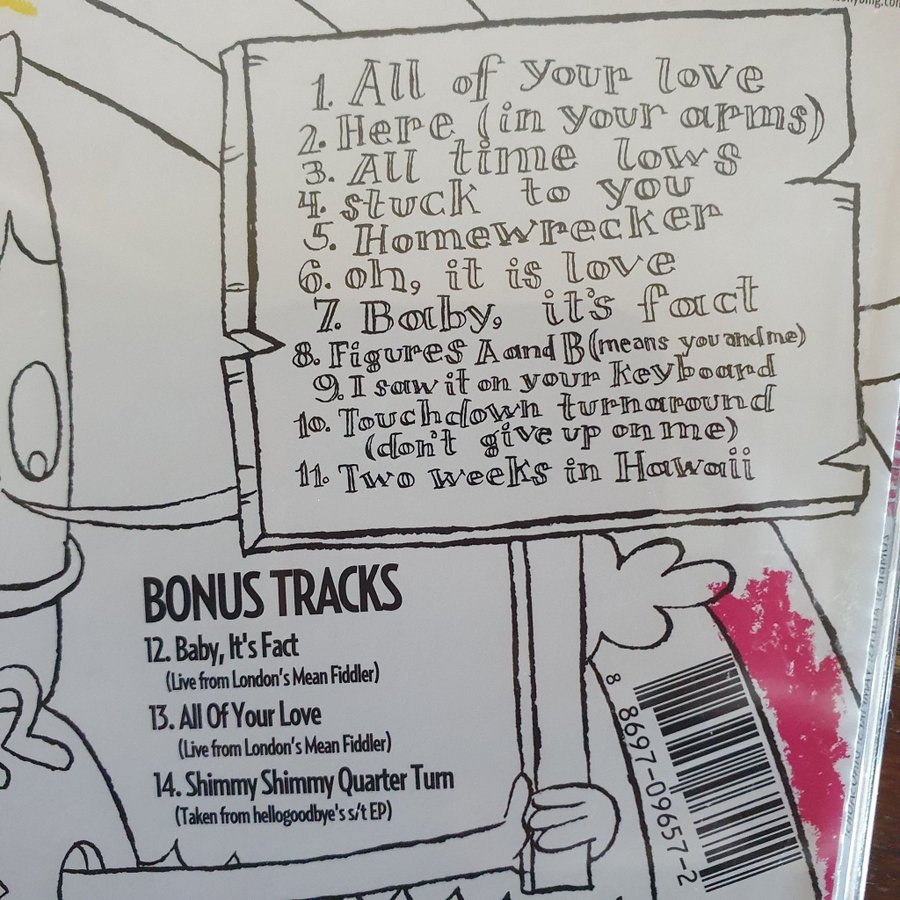 1. All of your love
2. Here (in your arms)
3. All time lows
4. stuck to you
5. Homewrecker
6. oh, it is love
7. Baby, it's fact
8. Figures A and B (means you and me)
9. I saw it on your keyboard
10. Touchdown turnaround
(don't give up on me)
11. Two weeks in Hawaii
BONUS TRACKS
12. Baby, It's Fact
(Live from London's Mean Fiddler)
13. All Of Your Love
(Live from London's Mean Fiddler)
14. Shimmy Shimmy Quarter Turn
(Taken from hellogoodbye's s/t EP)
8 8697-09657-2